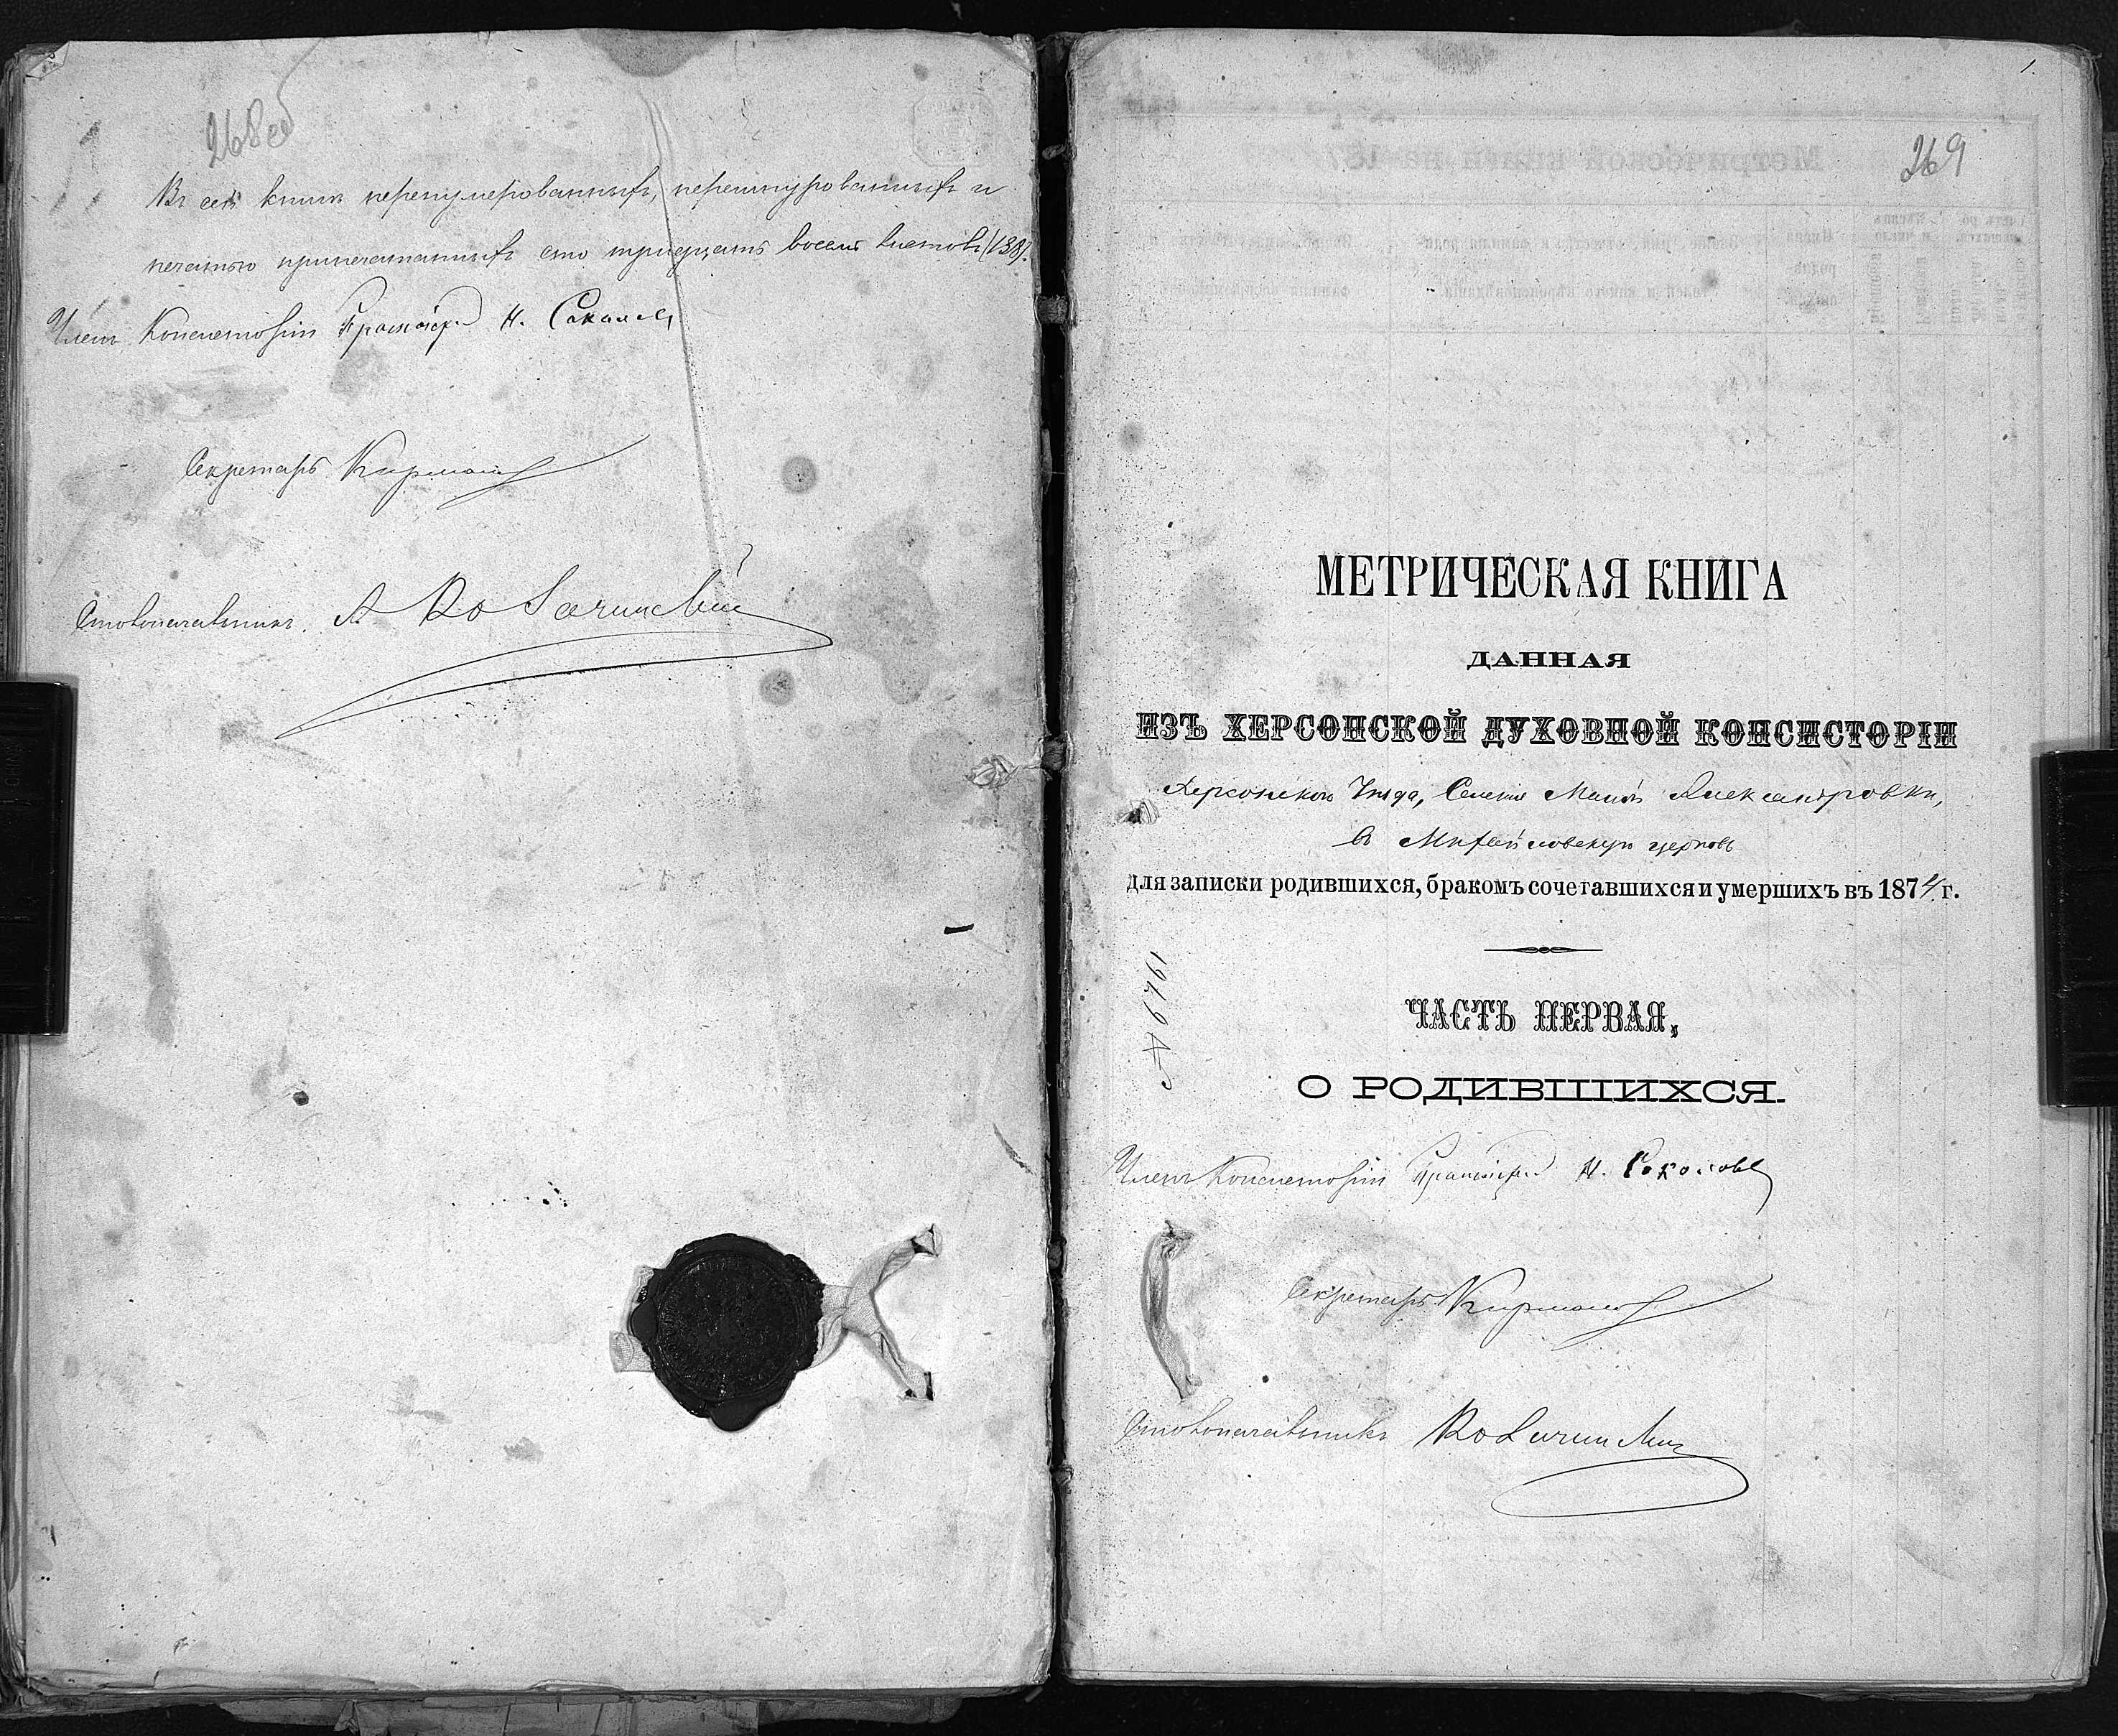 268об
Въ сей книгѣ перенумерованныхъ, перешнурованныхъ и
печатью припечатанныхъ сто тридцать восемь листовъ (138).
Членъ Консисторіи Протоіерей Н. Соколовъ
Секретарь
Столоначальникъ А.
1.
269
МЕТРИЧЕСКАЯ КНИГА
ДАННАЯ
ИЗЪ ХЕРСОНСКОЙ ДУХОВНОЙ КОНСИСТОРІИ
Херсонскаго Уѣзда, Селенія Малой Александровки,
въ Михайловскую церковь
для записки родившихся, бракомъ сочетавшихся и умершихъ въ 1874 г.
ЧАСТЬ ПЕРВАЯ,
О РОДИВШИХСЯ.
Членъ Консисторіи Протоіерей Н. Соколовъ
Секретарь
Столоначальникъ